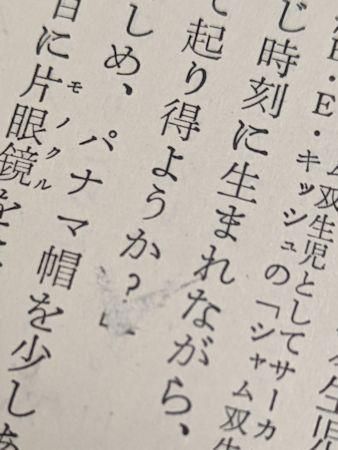 生児
ム双生児としてサーカ
E・E・キッシュの「シャム双生
じ時刻に生まれながら、
て起り得ようか？」
しめ、パナマ帽を少しあ
に片眼鏡を
モノクル